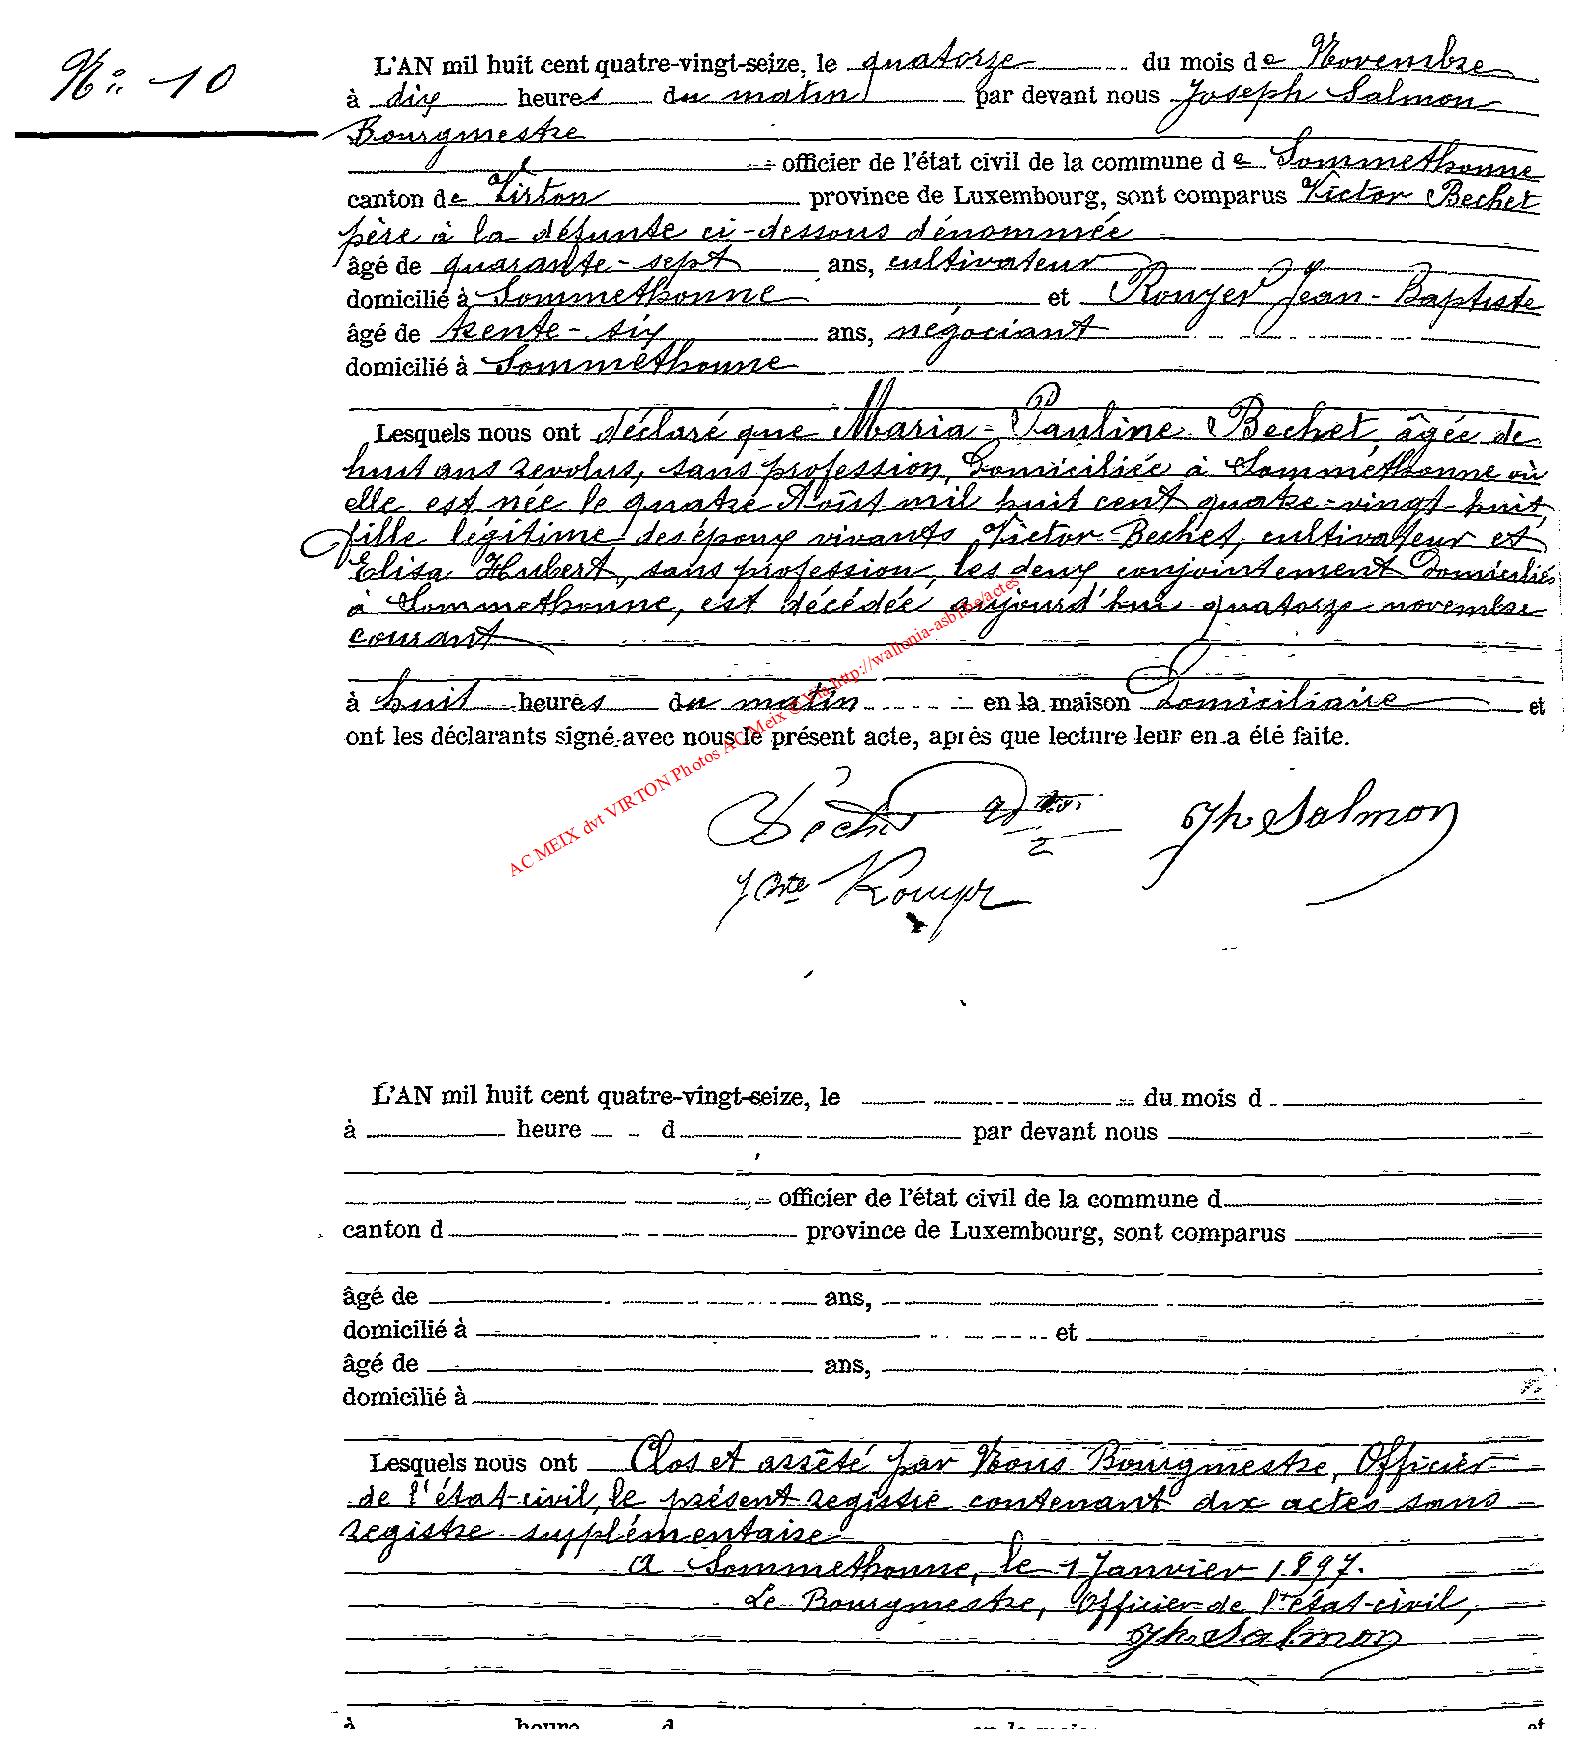 N° 10
L'AN mil huit cent quatre-vingt-seize, le quatorze du mois de Novembre
à dix heures du matin par devant nous Joseph Salmon
Bourgmestre
officier de l'état civil de la commune de Sommethonne
canton de Virton province de Luxembourg, sont comparus Victor Bechet
père à la défunte ci-dessous dénommée
âgé de quarante-sept ans, cultivateur
domicilié à Sommethonne et Rouyer Jean-Baptiste
âgé de trente-six ans, négociant
domicilié à Sommethonne
Lesquels nous ont déclaré que Maria-Pauline Bechet, âgée de
huit ans revolus, sans profession, Domiciliée à Sommethonne où
elle est née le quatre Août mil huit cent quatre-vingt-huit,
fille légitime des époux vivants Victor Bechet, cultivateur et
Elisa Hubert, sans profession, les deux conjointement Domiciliés
à Sommethonne, est décédée aujourd'hui quatorze novembre
courant
à huit heures du matin en la maison Domiciliaire et
ont les déclarants signé avec nous le présent acte, après que lecture leur en a été faite.
AC MEIX dvt VIRTON Photos AC Meix © Via http://wallonia-asbl.be/actes
Bechet Jph Salmon
J Bte Rouyer
L'AN mil huit cent quatre-vingt-seize, le du mois d
à heure d par devant nous
officier de l'état civil de la commune d
canton d province de Luxembourg, sont comparus
âgé de ans,
domicilié à et
âgé de ans,
domicilié à
Lesquels nous ont Clos et arrêté par Nous Bourgmestre, Officier
de l'état-civil, le présent registre contenant dix actes sans
registre supplémentaire
A Sommethonne, le 1 Janvier 1897.
Le Bourgmestre, Officier de l'état-civil,
Jph Salmon
à heure d en la mais et